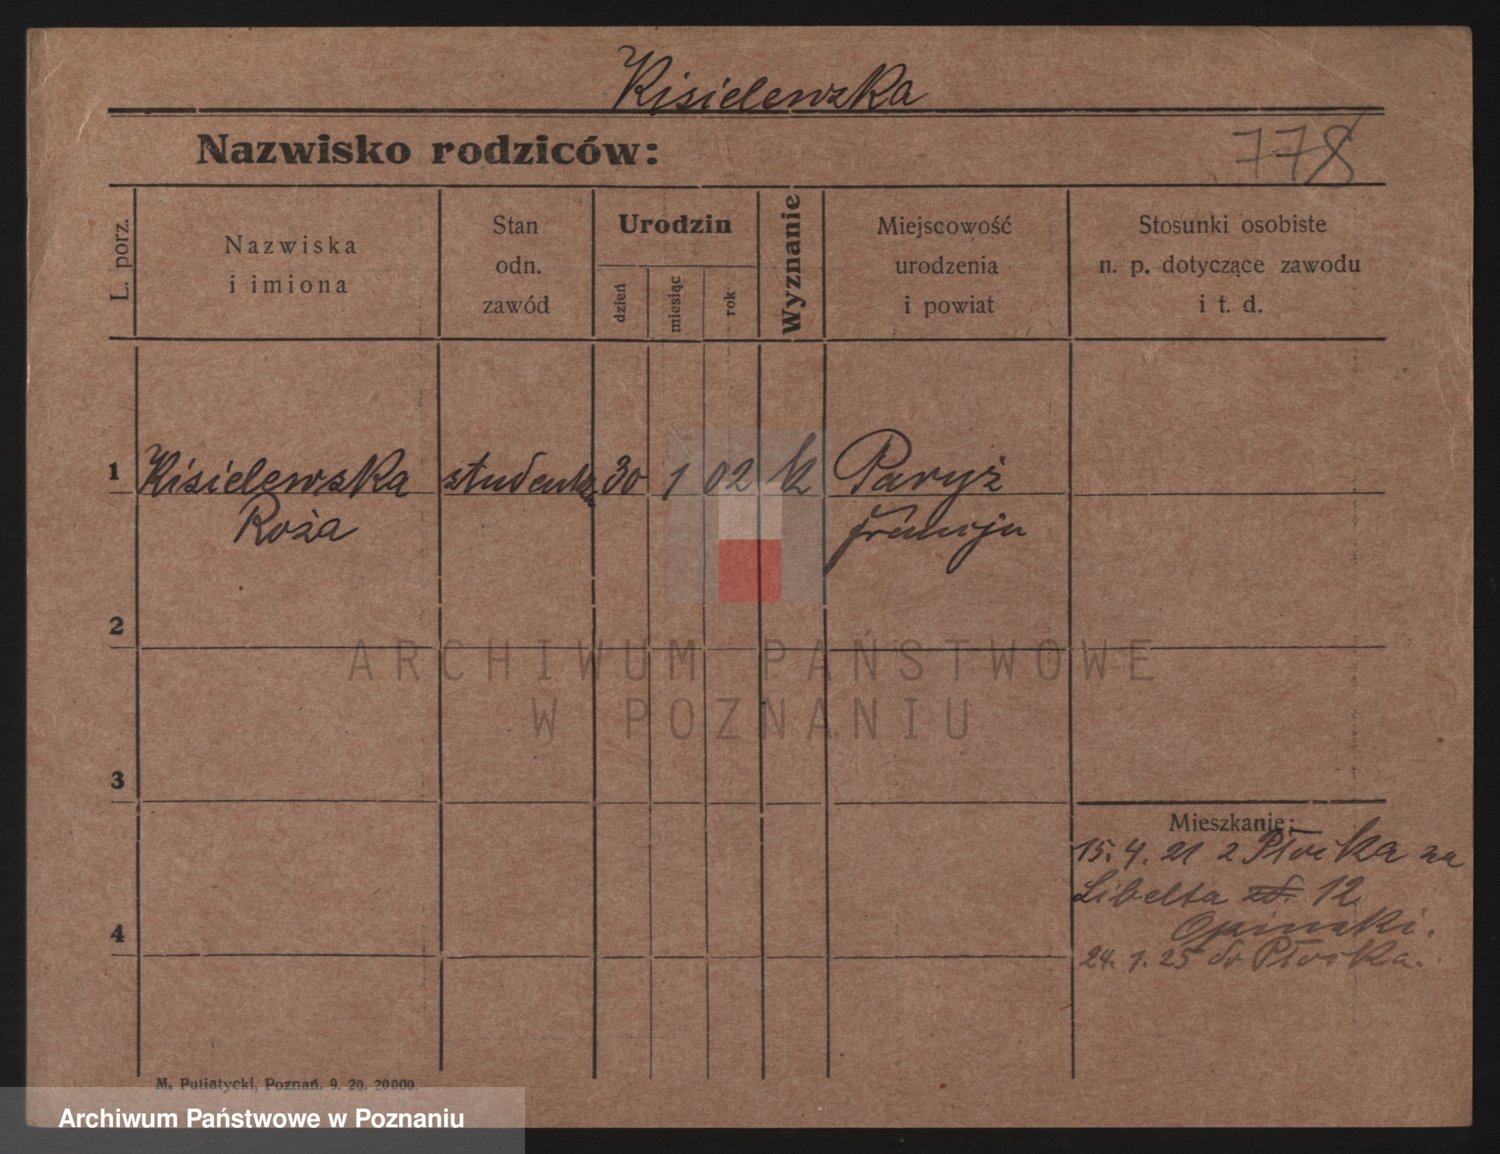 Kisielewska
Nazwisko rodziców:
778
L. porz.
Nazwiska
i imiona
Stan
odn.
zawód
Urodzin
dzień
miesiąc
rok
Wyznanie
Miejscowość
urodzenia
i powiat
Stosunki osobiste
n. p. dotyczące zawodu
i t. d.
1 Kisielewska studentka 30 1 02 k Paryż
Roża
2
ARCHIWUM PAŃSTWOWE
W POZNANIU
3
Mieszkanie:
15. 4. 21 z Płocka na
Libelta 12
4
Opinski.
24. 1. 25 do Płocka.
M. Putiatycki, Poznań. 9. 20. 20000.
Archiwum Państwowe w Poznaniu